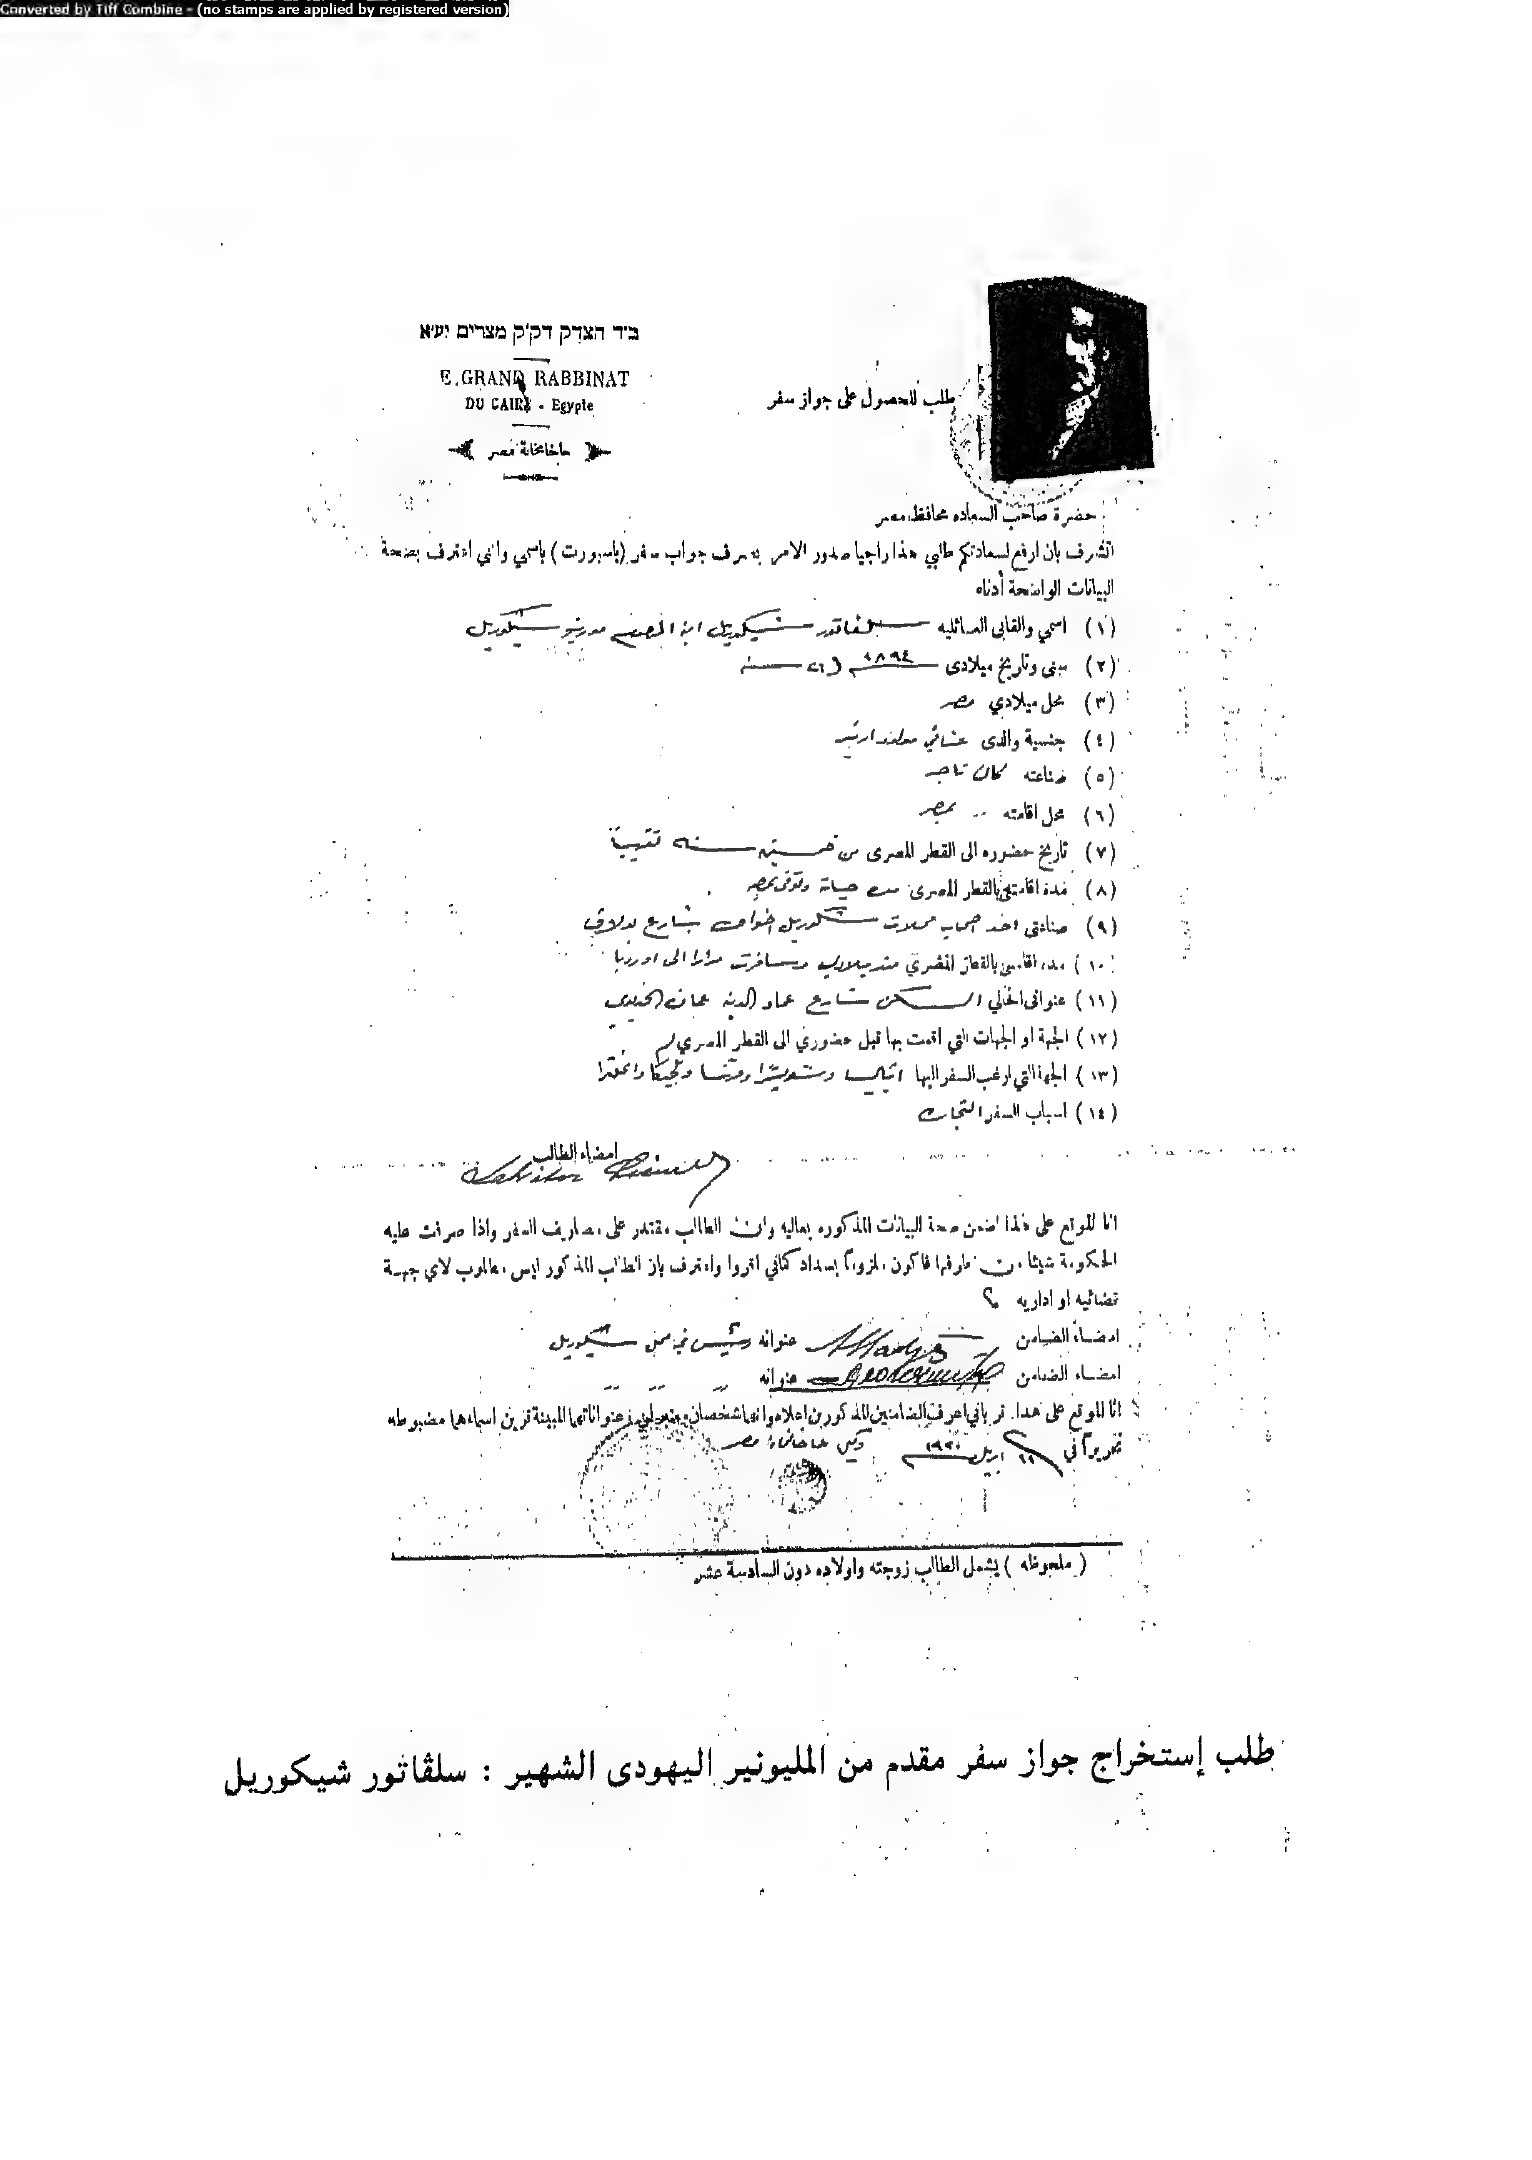 Converted by Tiff Combine - (no stamps are applied by registered version)
ב״ד הצדק דק״ק מצרים יע״א
E. GRAND RABBINAT
DU CAIRE - Egypte
حاخامخانة مصر
طلب للحصول على جواز سفر
حضرة صاحب السعاده محافظ مصر
اتشرف بان ارفع لسعادتكم طلبي هذا راجيا صدور الامر بصرف جواب سفر (باسبورت) باسمي وانني اعترف بصحة
البيانات الواضحة أدناه
(١) اسمي والقابى العائليه سلفاتور شيكوريل ابن المرحوم مورينو شيكوريل
(٢) سنى وتاريخ ميلادى ١٨٩٤ سنة
(٣) محل ميلادي مصر
(٤) جنسية والدى عثماني مولد ازمير
(٥) صناعته كان تاجر
(٦) محل اقامته بمصر
(٧) تاريخ حضوره الى القطر المصرى من خمسين سنه تقريباً
(٨) مدة اقامته بالقطر المصرى مدة حياته وتوفى بمصر
(٩) صناعتى احد اصحاب محلات شكوريل اخوان بشارع بولاق
(١٠) مدة اقامتى بالقطر المصري منذ ميلادى وسافرت مرارا الى اوروبا
(١١) عنوانى الحالي السكن شارع عماد الدين عمارات الخديوي
(١٢) الجهة او الجهات التي اقمت بها قبل حضوري الى القطر المصري
(١٣) الجهة التي ارغب السفر اليها ايطاليا وسويسرا وفرنسا وبلجيكا وانجلترا
(١٤) اسباب السفر التجارة
امضاء الطالب
انا الموقع على هذا اضمن صحة البيانات المذكوره بعاليه وان الطالب مقتدر على مصاريف السفر واذا صرفت عليه
الحكومة شيئا من طرفها فاكون ملزوما بسداد كافي اقروا واعترف بان الطالب المذكور ليس مطلوب لاي جهة
قضائيه او اداريه
امضاء الضامن عنوانه رئيس في محل شيكوريل
امضاء الضامن عنوانه
انا الموقع على هذا اقر باني اعرف الضامنين المذكورين اعلاه وانهما شخصان وعنواناتهما المبينة قرين اسماءهما مضبوطه
تحريراً في ١١ ابريل ١٩٢٠ وكيل حاخامخانة مصر
(ملحوظه) يشمل الطالب زوجته واولاده دون السادسة عشر
طلب إستخراج جواز سفر مقدم من المليونير اليهودى الشهير : سلڤاتور شيكوريل